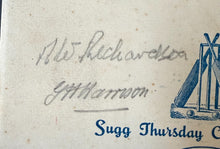 A W Richardson
G H Harrison
Sugg Thursday C